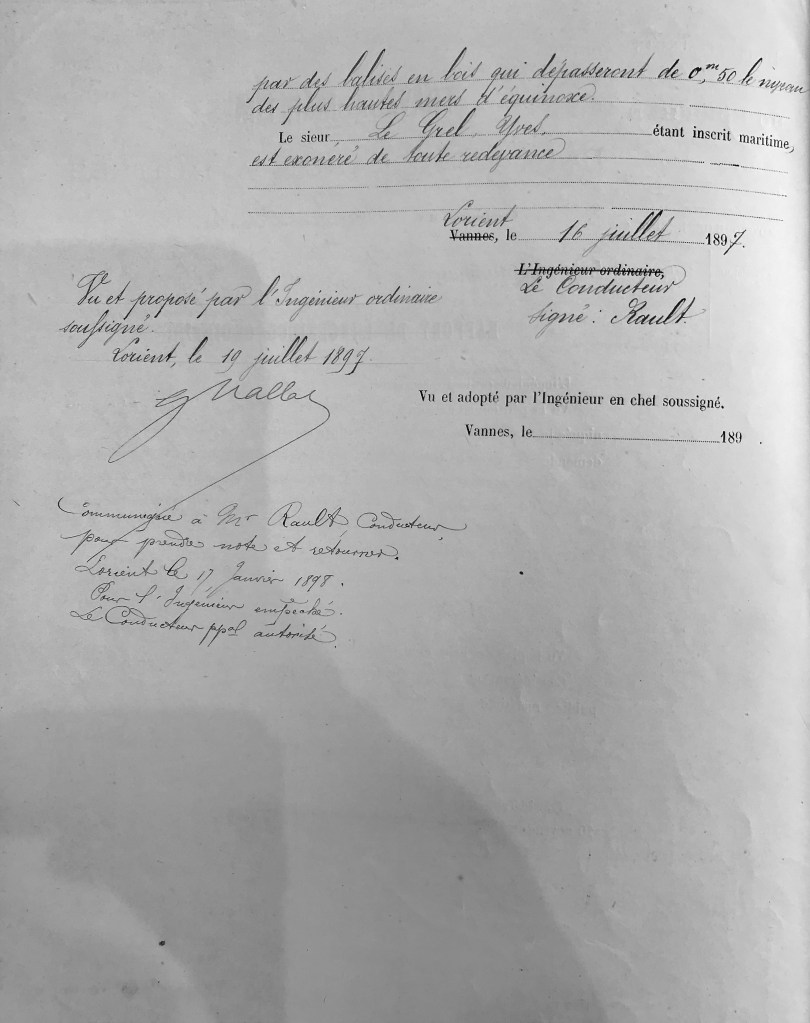 par des balises en bois qui dépasseront de 0,m50 le niveau
des plus hautes mers d'équinoxe.
Le sieur Le Grel, Yves, étant inscrit maritime,
est exonéré de toute redevance
Lorient
Vannes, le 16 juillet 1897.
L'Ingénieur ordinaire,
Le Conducteur
Signé : Rault
Vu et proposé par l'Ingénieur ordinaire
soussigné.
Lorient, le 19 juillet 1897.
Vu et adopté par l'Ingénieur en chef soussigné.
Vannes, le 189 .
Communiqué à Mr Rault, Conducteur,
pour prendre note et retourner.
Lorient le 17 Janvier 1898.
Pour l'Ingénieur empêché.
Le Conducteur ppal autorisé.